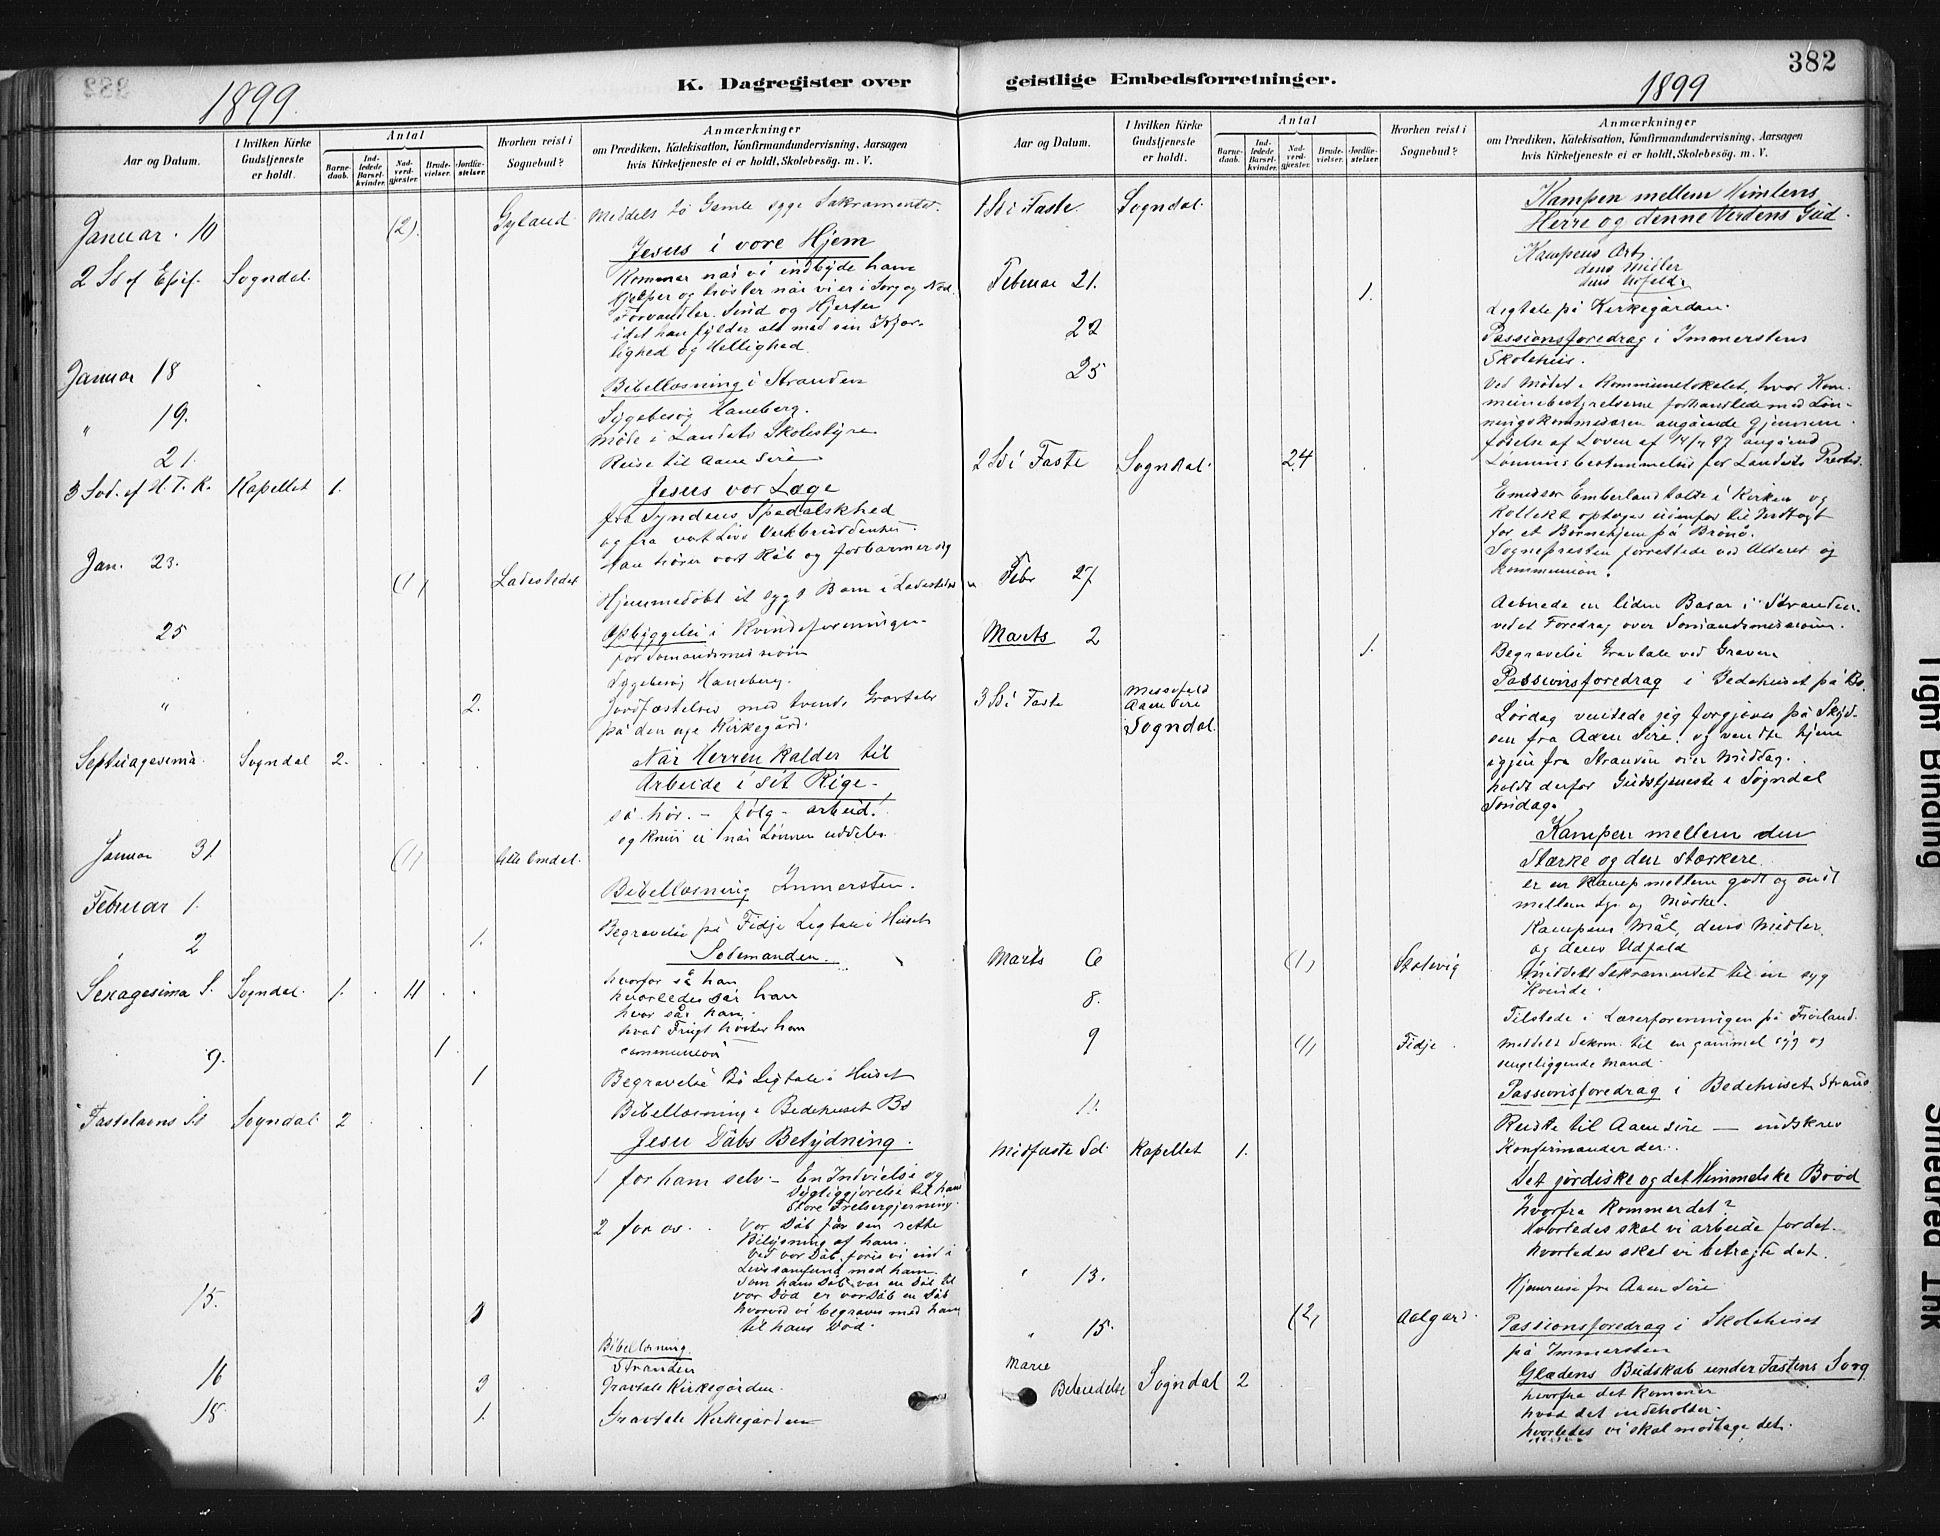 382
K. Dagregister over
geistlige Embedsforretninger.
1899.
1899
Aar og Datum.
I hvilken Kirke Gudstjeneste er holdt.
Antal
Barne-daab.
Ind-ledede Barsel-kvinder.
Nad-verd-gjester.
Brude-vielser.
Jordfæ-stelser.
Hvorhen reist i Sognebud?
Anmærkninger
om Prædiken, Katekisation, Konfirmandundervisning, Aarsagen
hvis Kirketjeneste ei er holdt, Skolebesøg. m. V.
Januar. 10 (2). Gyland Meddelt to Gamle syge Sakramentet.
Jesus i vore Hjem
2 Sd ef Epif. Sogndal. Kommer når vi indbyde ham
hjelper og trøster når vi er i Sorg og Nød.
Forvandler Sind og Hjerter
idet han fylder alt med sin Kjær-
lighed og Hellighed.
Januar 18 Bibellæsning i Stranden
" 19. Sygebesøg Haneberg.
Møde i Landets Skolestyre
21. Reise til Aane Sire
3 Sd. ef H. T. K. Kapellet 1. Jesus vor Læge
fra Syndens Spedalskhed
og fra vort Livs Verkbrudenhed
Han hører vort Råb og forbarmer sig
Jan. 23. (1) Ladestedet Hjemmedøbt et sygt Barn i Ladestedet
25 Opbyggelse i Kvindeforeningen
for Sømandsmissionen
Sygebesøg Haneberg.
" 2. Jordfæstelse med tvende Gravtaler
på den nye Kirkegård.
Septuagesima. Sogndal 2. Når Herren kalder til
Arbeide i sit Rige-
så hør. - følg - arbeid!
og knur ei når Lønnen uddeles.
Januar 31. (1) lille Omdal.
Februar 1. Bibellæsning Immersten.
2 1. Begravelse på Fidje Ligtale i Huset
Sædemanden.
Sexagesima S. Sogndal. 1. 11 hvorfor så han
hvorledes sår han
hvor sår han.
hvad Frugt høster han
communion
9. 1.
1 Begravelse Bø Ligtale i Huset
Bibellæsning i Bedehuset Bø
Fastelavns Sd Sogndal 2 Jesu Dåbs Betydning.
1 for ham selv - En Indvielse og
Dygtiggjørelse til hans
store Frelsergjerning.
2 for os. Vor Dåb får sin rette
Belysning af hans.
Ved vor Dåb føres vi ind i
Livssamfund med ham.
Som hans Dåb var en Dåb til
vor Død er vor Dåb en Dåb
hvorved vi begraves med ham
til hans Død.
15. Bibellæsning
Stranden
16 Gravtale Kirkegården.
18. 1. Gravtale Kirkegården
Aar og Datum.
I hvilken Kirke Gudstjeneste er holdt.
Antal
Barne-daab.
Ind-ledede Barsel-kvinder.
Nad-verd-gjester.
Brude-vielser.
Jordfæ-stelser.
Hvorhen reist i Sognebud?
Anmærkninger
om Prædiken, Katekisation, Konfirmandundervisning, Aarsagen
hvis Kirketjeneste ei er holdt, Skolebesøg. m. V.
1 Sd i Faste. Sogndal. Kampen mellem Himlens
Herre og denne Verdens Gud.
Kampens Art,
dens Midler
dens Udfald.
Februar 21. 1. Ligtale på Kirkegården.
22 Passionsforedrag i Immerstens
Skolehus.
25 Ved Mødet i Kommunelokalet, hvor Kom-
munebestyrelserne forhandlede med Løn-
ningskommissæren angående Gjennem-
førelse af Loven af 14/7 97 angående
Lønningsbestemmelse for Landets Prester.
2 Sd i Faste Sogndal. 24 Emissær Emberland talte i Kirken og
Kollekt optoges udenfor til Indtægt
for et Børnehjem på Brønø.
Sognepresten forrettede ved Alteret og
Kommunion.
Febr 27 Aabnede en liden Basar i Stranden
ved et Foredrag over Sømandsmissionen.
Marts 2 1. Begravelse Gravtale ved Graven
Passionsforedrag i Bedehuset på Bø.
3 Sd i Faste Messefald
Aane Sire
Sogndal. Lørdag ventede jeg forgjæves på Skyd-
sen fra Aaen Sire, og vendte hjem
igjen fra Stranden over Middag.
holdt derfor Gudstjeneste i Sogndal
Søndag.
Kampen mellem den
Stærke og den stærkere.
er en Kamp mellem godt og ondt
mellem Lys og Mørke.
Kampens Mål, dens Midler
og dens Udfald
Marts 6 (1) Stolevig Meddelt Sakramentet til en syg
Kvinde.
8. Tilstede i Lærerforeningen på Frøiland.
9 (1) Fidje. Meddelt Sakram. til en gammel syg og
sengeliggende Mand.
Passionsforedrag i Bedehuset Strand
11. Reiste til Aaen Sire — indskrev
Konfirmander der.
Midfaste Sd. Kapellet 1. Det jordiske og det Himmelske Brød
Hvorfra kommer det?
Hvorledes skal vi arbeide for det.
Hvorledes skal vi betragte det.
" 13. Hjemreise fra Aaen Sire
" 15. (2) Aalgard. Passionsforedrag i Skolehuset
på Immersten
Marie
Bebudelse Sogndal 2 Glædens Budskab under Fastens Sorg
hvorfra det kommer
hvad det indeholder.
hvorledes vi skal modtage det.
Tight Binding
Smeared Ink